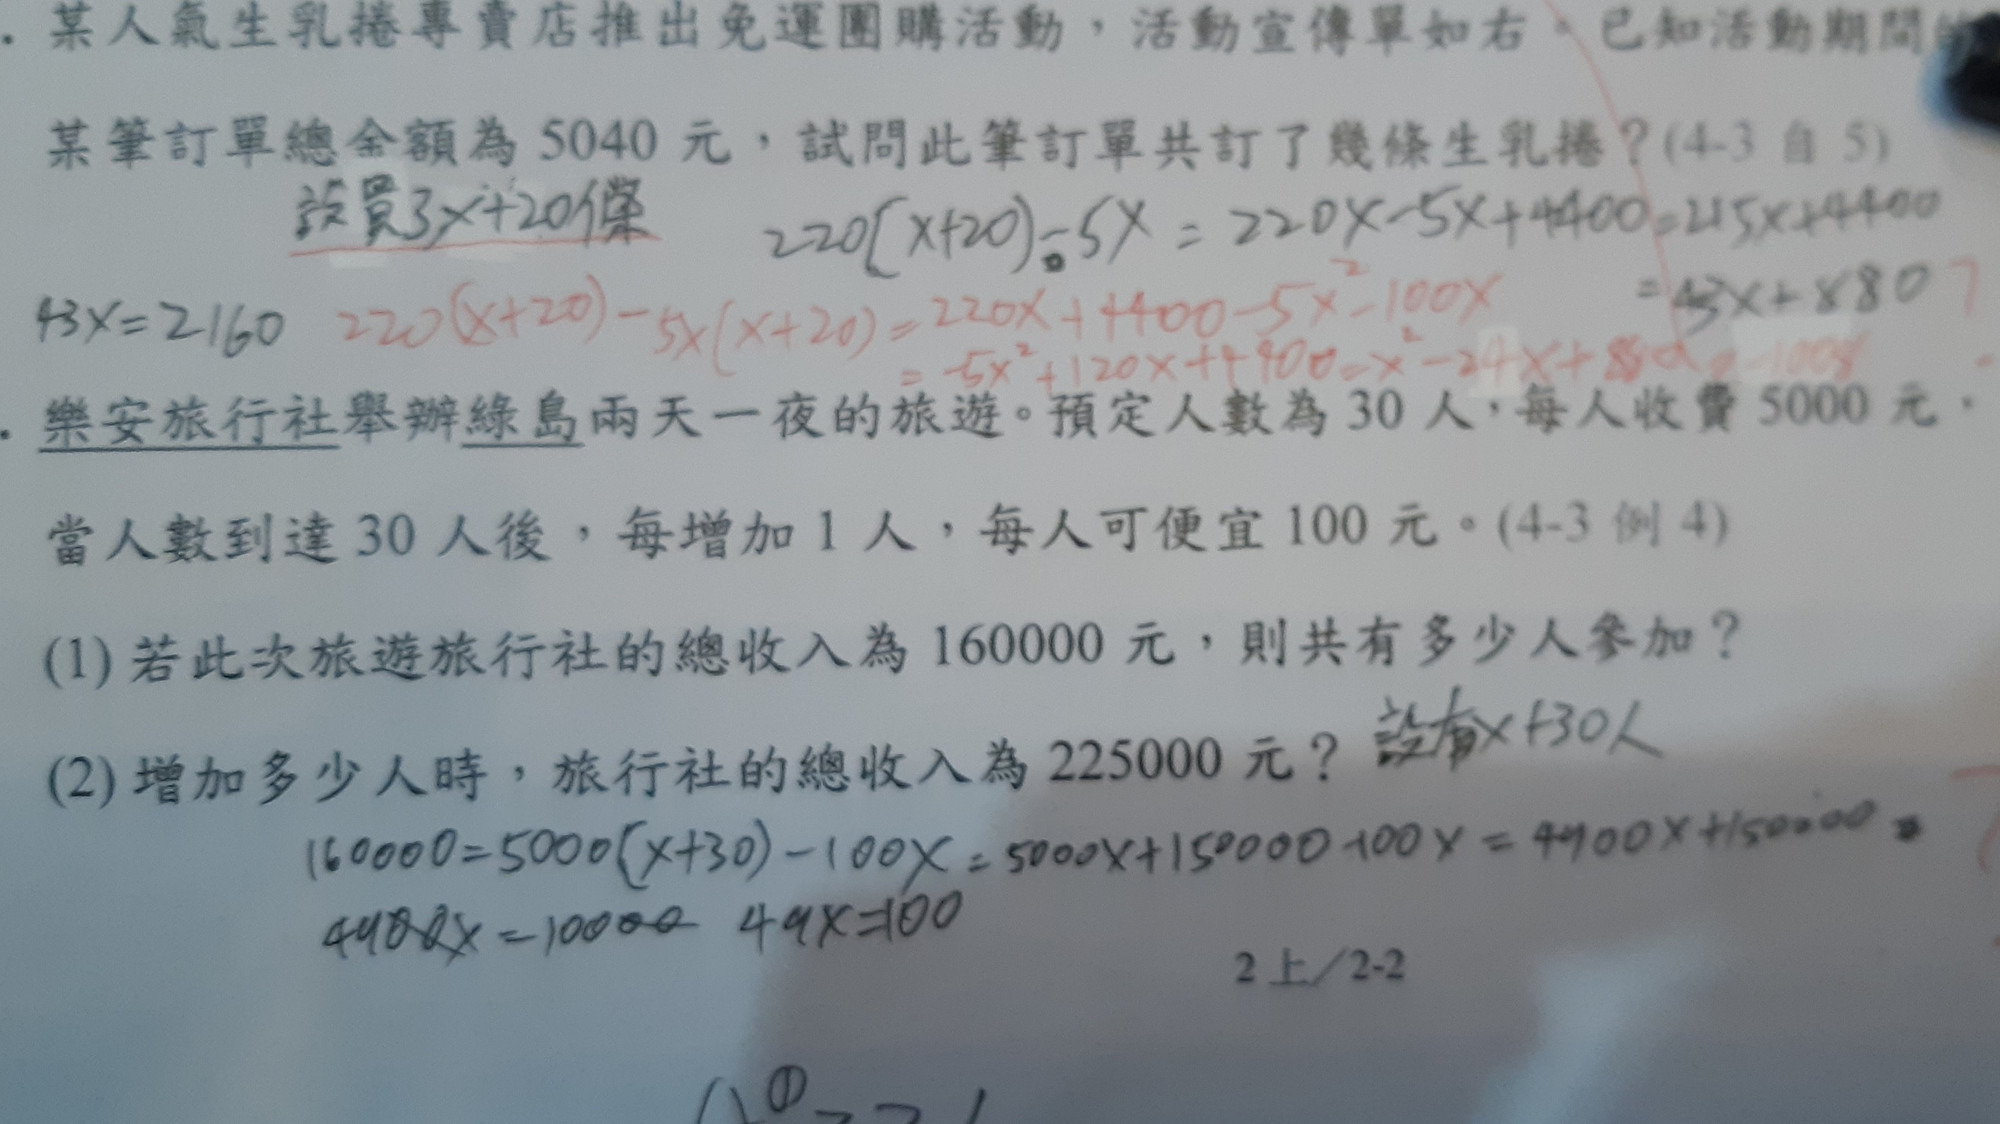 . 某人氣生乳捲專賣店推出免運團購活動，活動宣傳單如右。已知活動期間的
某筆訂單總金額為 5040 元，試問此筆訂單共訂了幾條生乳捲？(4-3 自 5)
設買3x+20條 220(x+20)-5x = 220x-5x+4400=215x+4400
=43x+880
43x=2160 220(x+20)-5x(x+20)=220x+4400-5x²-100x
=-5x²+120x+4400=x²-24x+
. 樂安旅行社舉辦綠島兩天一夜的旅遊。預定人數為 30 人，每人收費 5000 元，
當人數到達 30 人後，每增加 1 人，每人可便宜 100 元。(4-3 例 4)
(1) 若此次旅遊旅行社的總收入為 160000 元，則共有多少人參加？
(2) 增加多少人時，旅行社的總收入為 225000 元？ 設有x+30人
160000=5000(x+30)-100x=5000x+150000-100x=4900x+150000
4900x=10000 49x=100
2上／2-2
①